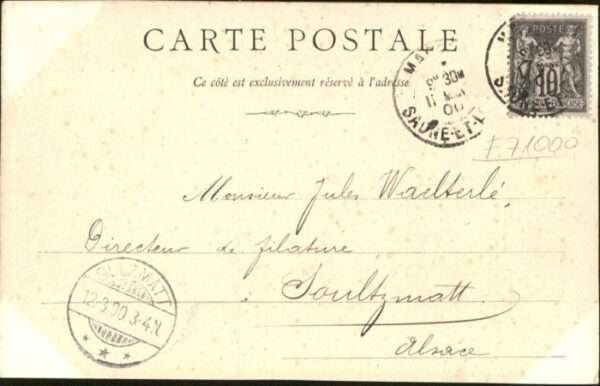 CARTE POSTALE
Ce côté est exclusivement réservé à l'adresse
POSTE
10
SAONE-ET-L
F71000
Monsieur Jules Waelterlé,
Directeur de filature
à Soultzmatt.
Alsace
SULZMATT
12.3.00 3-4.N